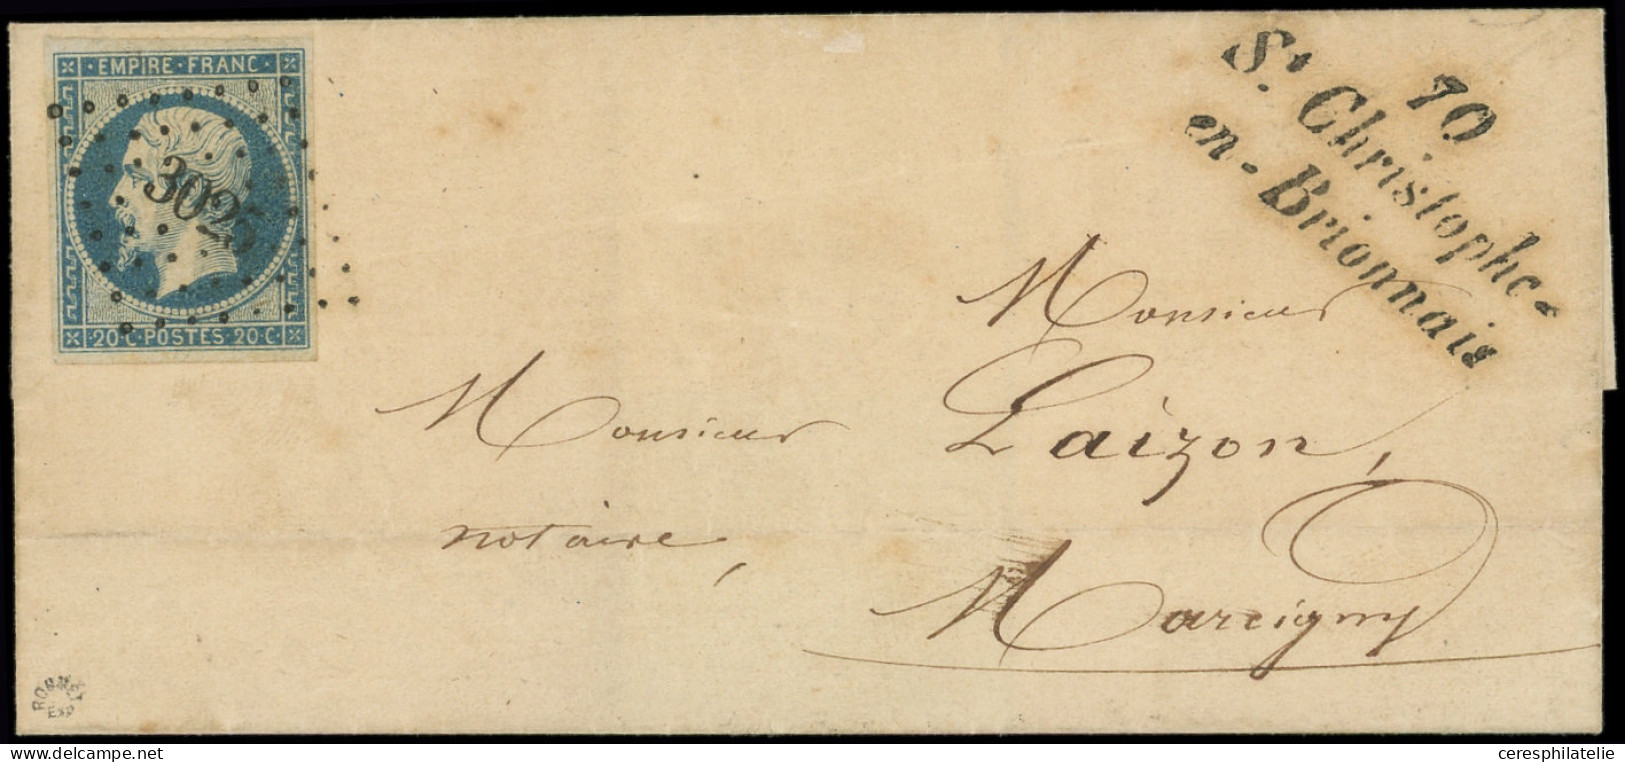 EMPIRE · FRANC ·
3025
20 · C · POSTES · 20 · C ·
70
St Christophe-
en-Brionnais
Monsieur
Laizon,
Monsieur
notaire,
Marcigny
ROUMET
EXP
ceresphilatelie